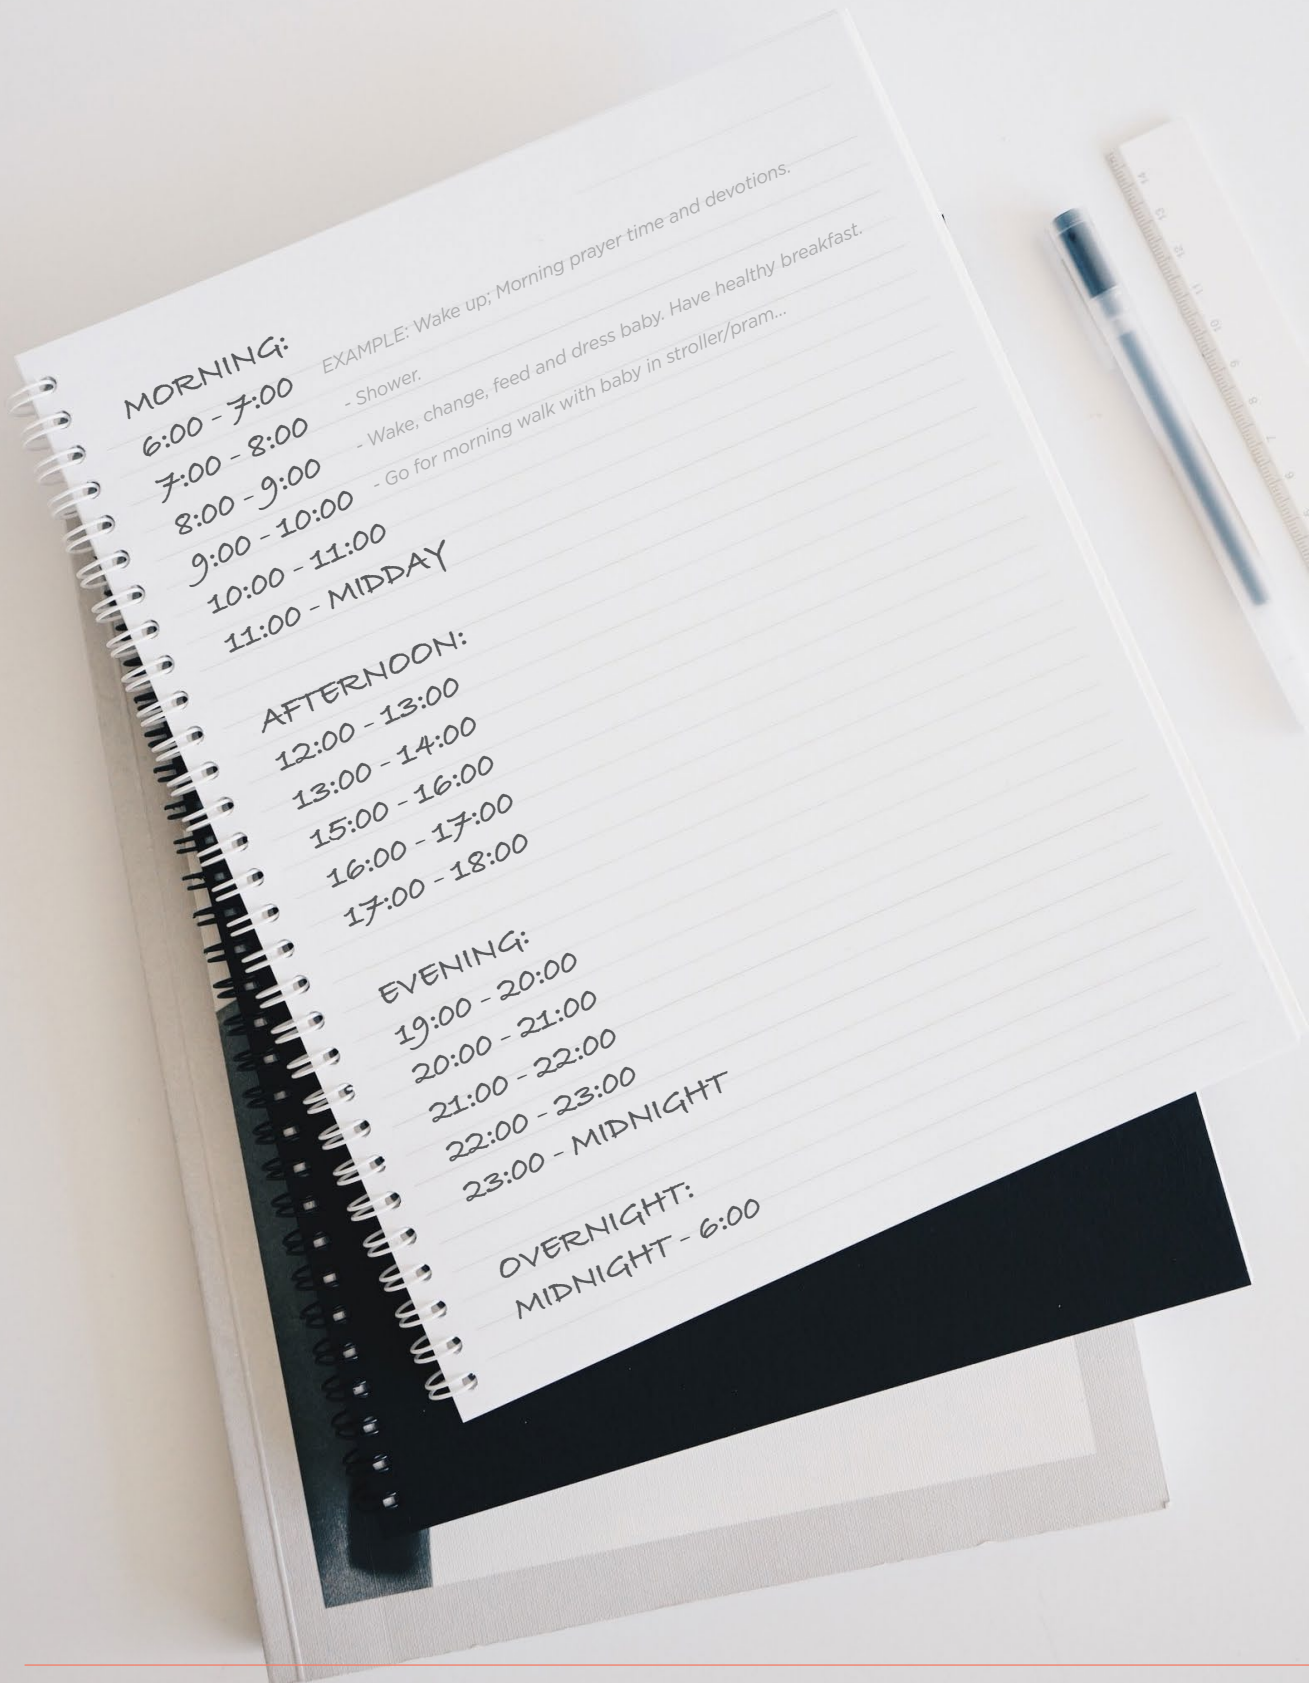 MORNING:
6:00 - 7:00 EXAMPLE: Wake up; Morning prayer time and devotions.
7:00 - 8:00 - Shower.
8:00 - 9:00 - Wake, change, feed and dress baby. Have healthy breakfast.
9:00 - 10:00 - Go for morning walk with baby in stroller/pram...
10:00 - 11:00
11:00 - MIDDAY
AFTERNOON:
12:00 - 13:00
13:00 - 14:00
15:00 - 16:00
16:00 - 17:00
17:00 - 18:00
EVENING:
19:00 - 20:00
20:00 - 21:00
21:00 - 22:00
22:00 - 23:00
23:00 - MIDNIGHT
OVERNIGHT:
MIDNIGHT - 6:00